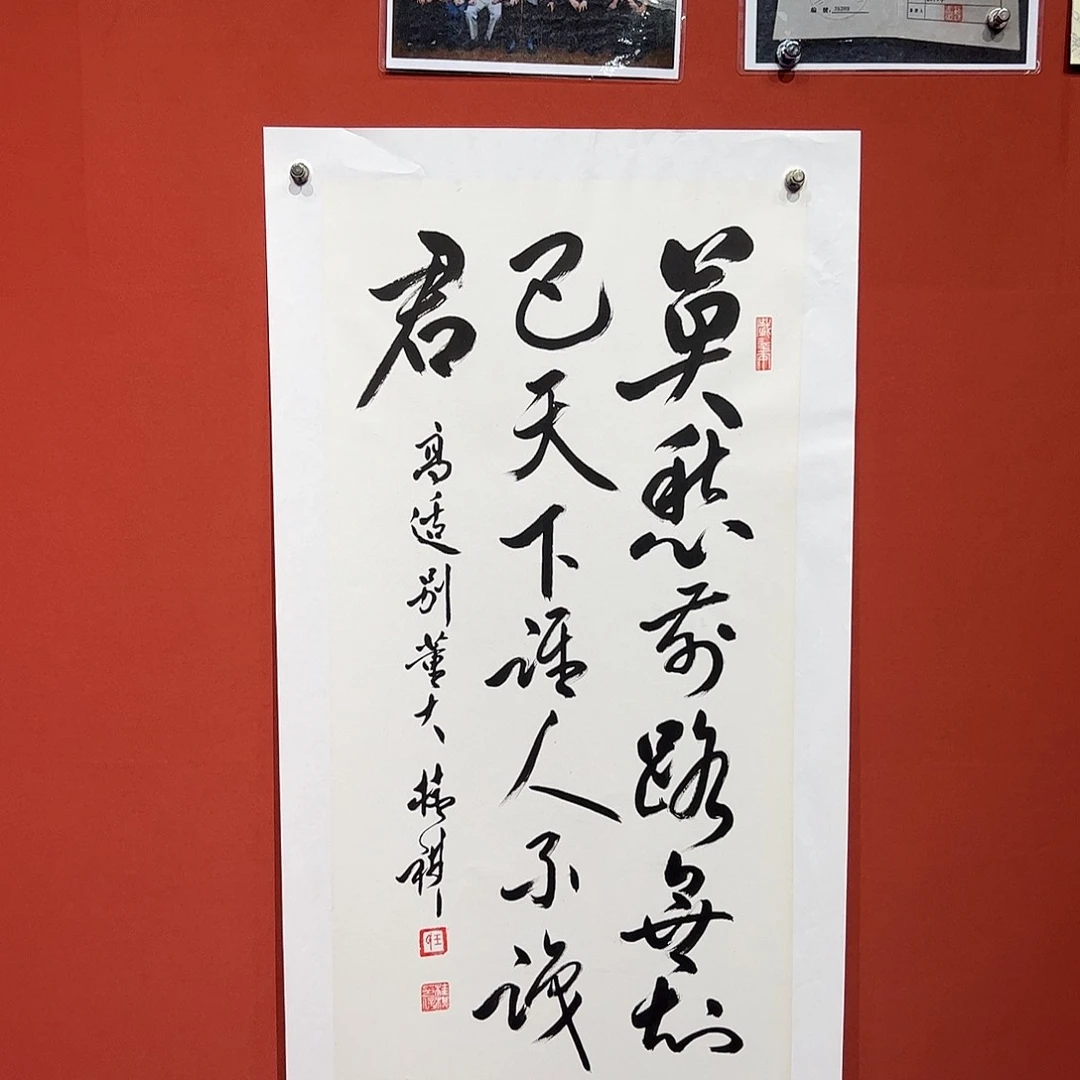 莫愁前路無知
己天下誰人不識
君
高适别董大